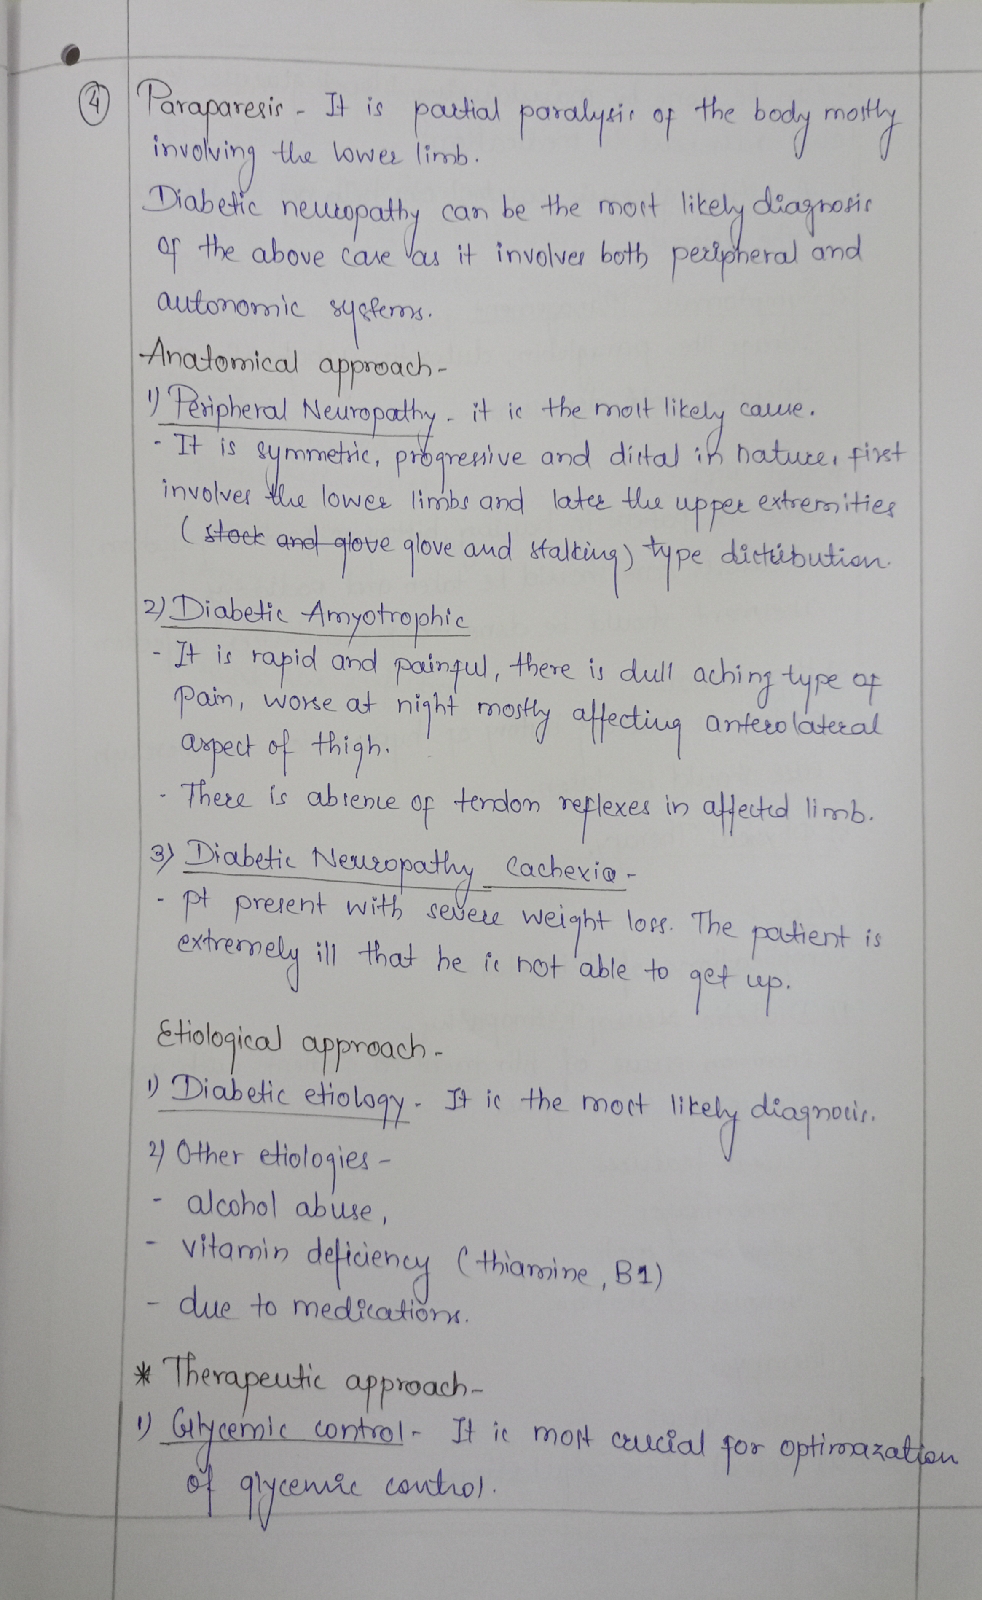 4 Paraparesis - It is partial paralysis of the body mostly
involving the lower limb.
Diabetic neuropathy can be the most likely diagnosis
of the above case as it involves both peripheral and
autonomic systems.
Anatomical approach -
1) Peripheral Neuropathy - it is the most likely cause.
- It is symmetric, progressive and distal in nature, first
involves the lower limbs and later the upper extremities
( stock and glove glove and stalking) type distribution.
2) Diabetic Amyotrophic
- It is rapid and painful, there is dull aching type of
pain, worse at night mostly affecting anterolateral
aspect of thigh.
- There is absence of tendon reflexes in affected limb.
3) Diabetic Neuropathy Cachexia -
- pt present with severe weight loss. The patient is
extremely ill that he is not able to get up.
Etiological approach -
1) Diabetic etiology - It is the most likely diagnosis.
2) Other etiologies -
- alcohol abuse,
- vitamin deficiency (thiamine, B1)
- due to medications.
* Therapeutic approach -
1) Glycemic control - It is most crucial for optimazation
of glycemic control.